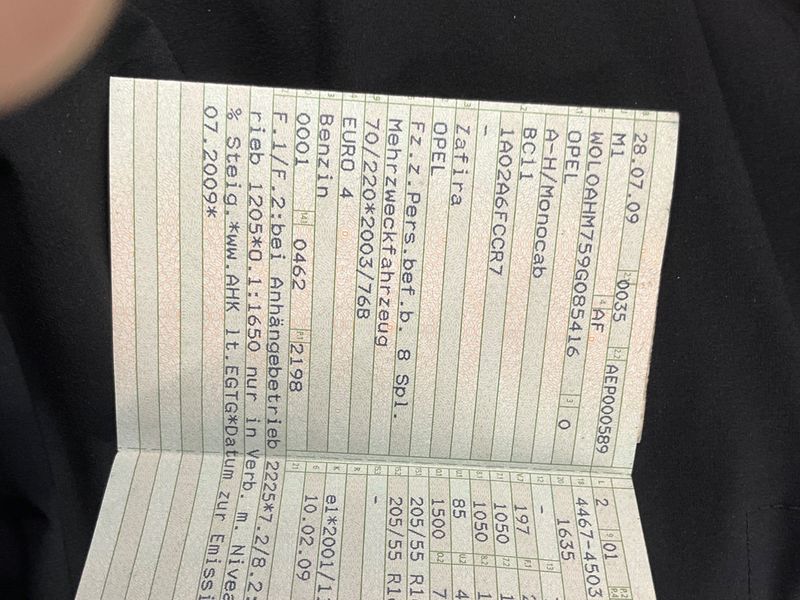 28.07.09 0035 AEP000589
M1 AF
W0L0AHM759G085416 0
OPEL
A-H/Monocab
BC11
1A02A6FCCR7
-
Zafira
OPEL
Fz.z.Pers.bef.b. 8 Spl.
Mehrzweckfahrzeug
70/220*2003/76B
EURO 4
Benzin
0001 0462 2198
F.1/F.2:bei Anhängebetrieb 2225*7.2/8.2:
rieb 1205*0.1:1650 nur in Verb. m. Nivea
% Steig.*ww.AHK lt.EGTG*Datum zur Emissi
07.2009*
2 01
4467-4503
1635
-
197
1050
1050
85
1500
205/55
205/55
-
e1*2001/1
10.02.09